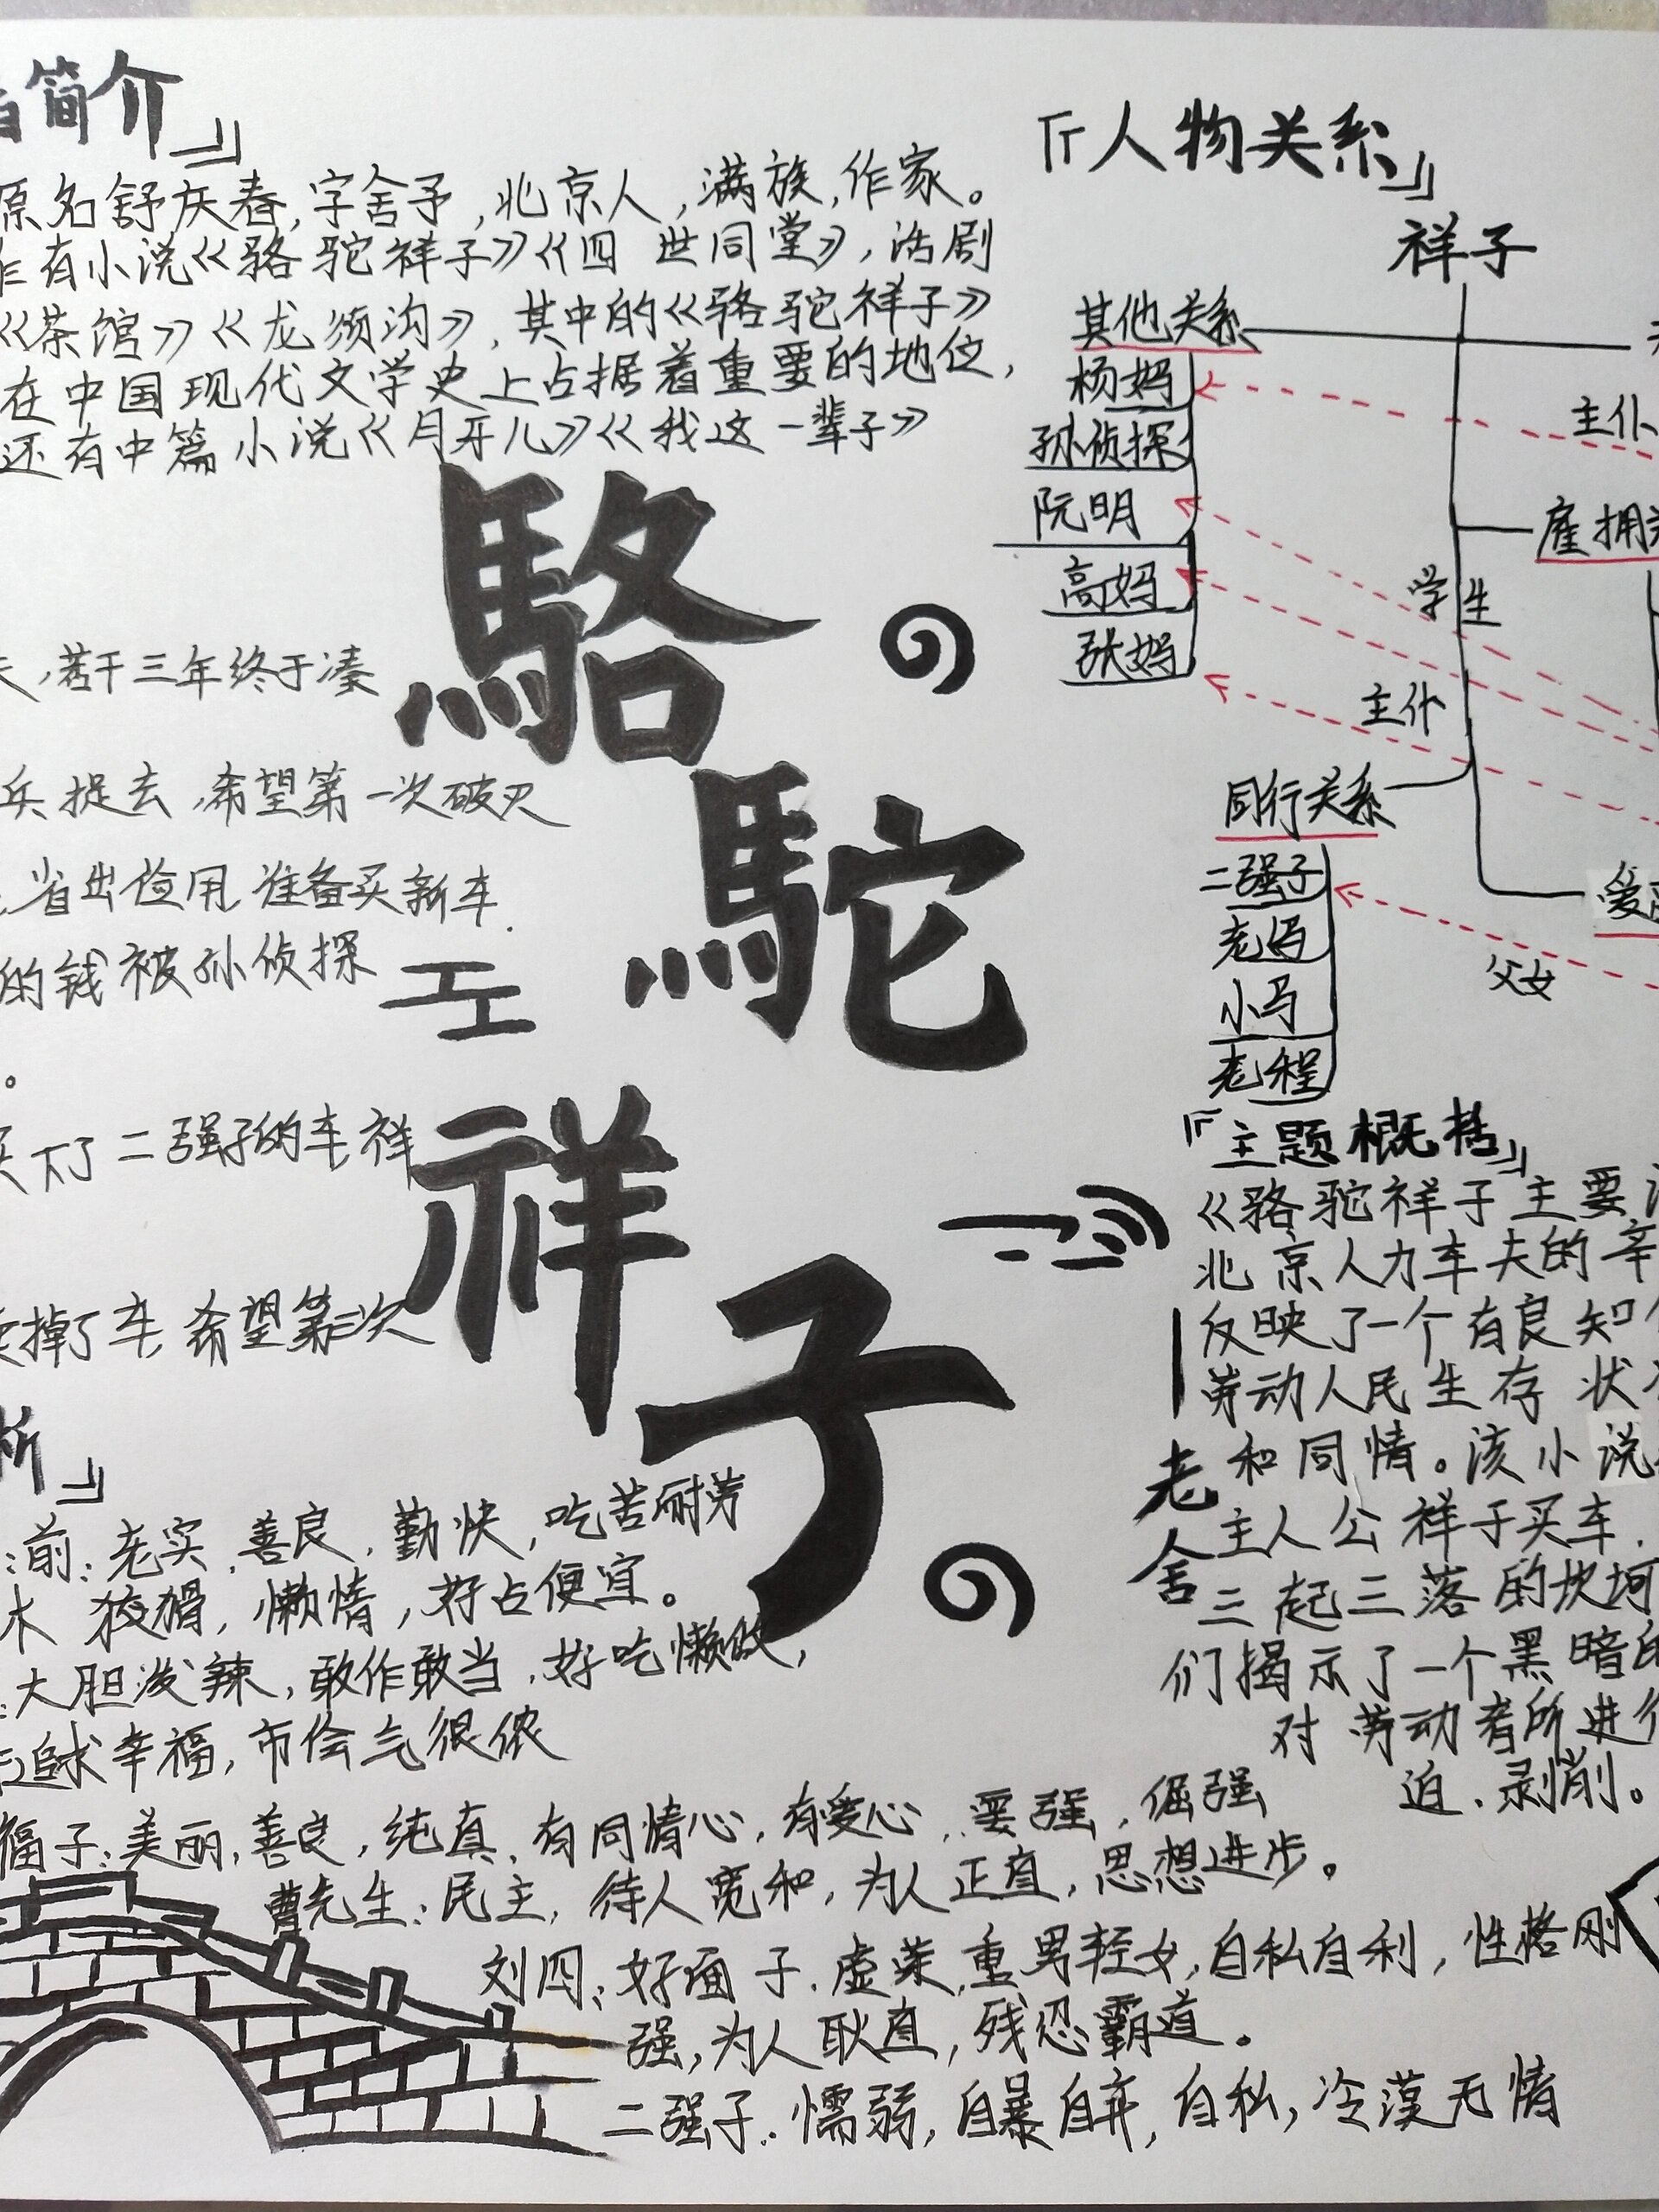 简介』
原名舒庆春,字舍予,北京人,满族,作家。
有小说《骆驼祥子》《四世同堂》,话剧
《茶馆》《龙须沟》,其中的《骆驼祥子》
在中国现代文学史上占据着重要的地位,
还有中篇小说《月牙儿》《我这一辈子》
駱駝祥子
老舍
,若干三年终于凑
兵捉去,希望第一次破灭
省出俭用准备买新车.
的钱被孙侦探
。
下了二强子的车,祥
掉了车,希望第三次
析』
:前:老实,善良,勤快,吃苦耐劳
木 狡猾,懒惰,好占便宜。
:大胆泼辣,敢作敢当,好吃懒做,
追求幸福,市侩气很浓
福子:美丽,善良,纯真,有同情心,有爱心,要强,倔强
曹先生:民主,待人宽和,为人正直,思想进步。
刘四:好面子,虚荣,重男轻女,自私自利,性格刚
强,为人耿直,残忍霸道。
二强子:懦弱,自暴自弃,自私,冷漠无情
『人物关系』
祥子
其他关系
杨妈
孙侦探
阮明
高妈
张妈
主仆
雇拥
学生
主仆
同行关系
二强子
老马
小马
老程
父女
爱
『主题概括』
《骆驼祥子主要
北京人力车夫的辛
反映了一个有良知
劳动人民生存状
和同情。该小说
主人公祥子买车.
三起三落的坎坷
们揭示了一个黑暗的
对劳动者所进行
迫.剥削。